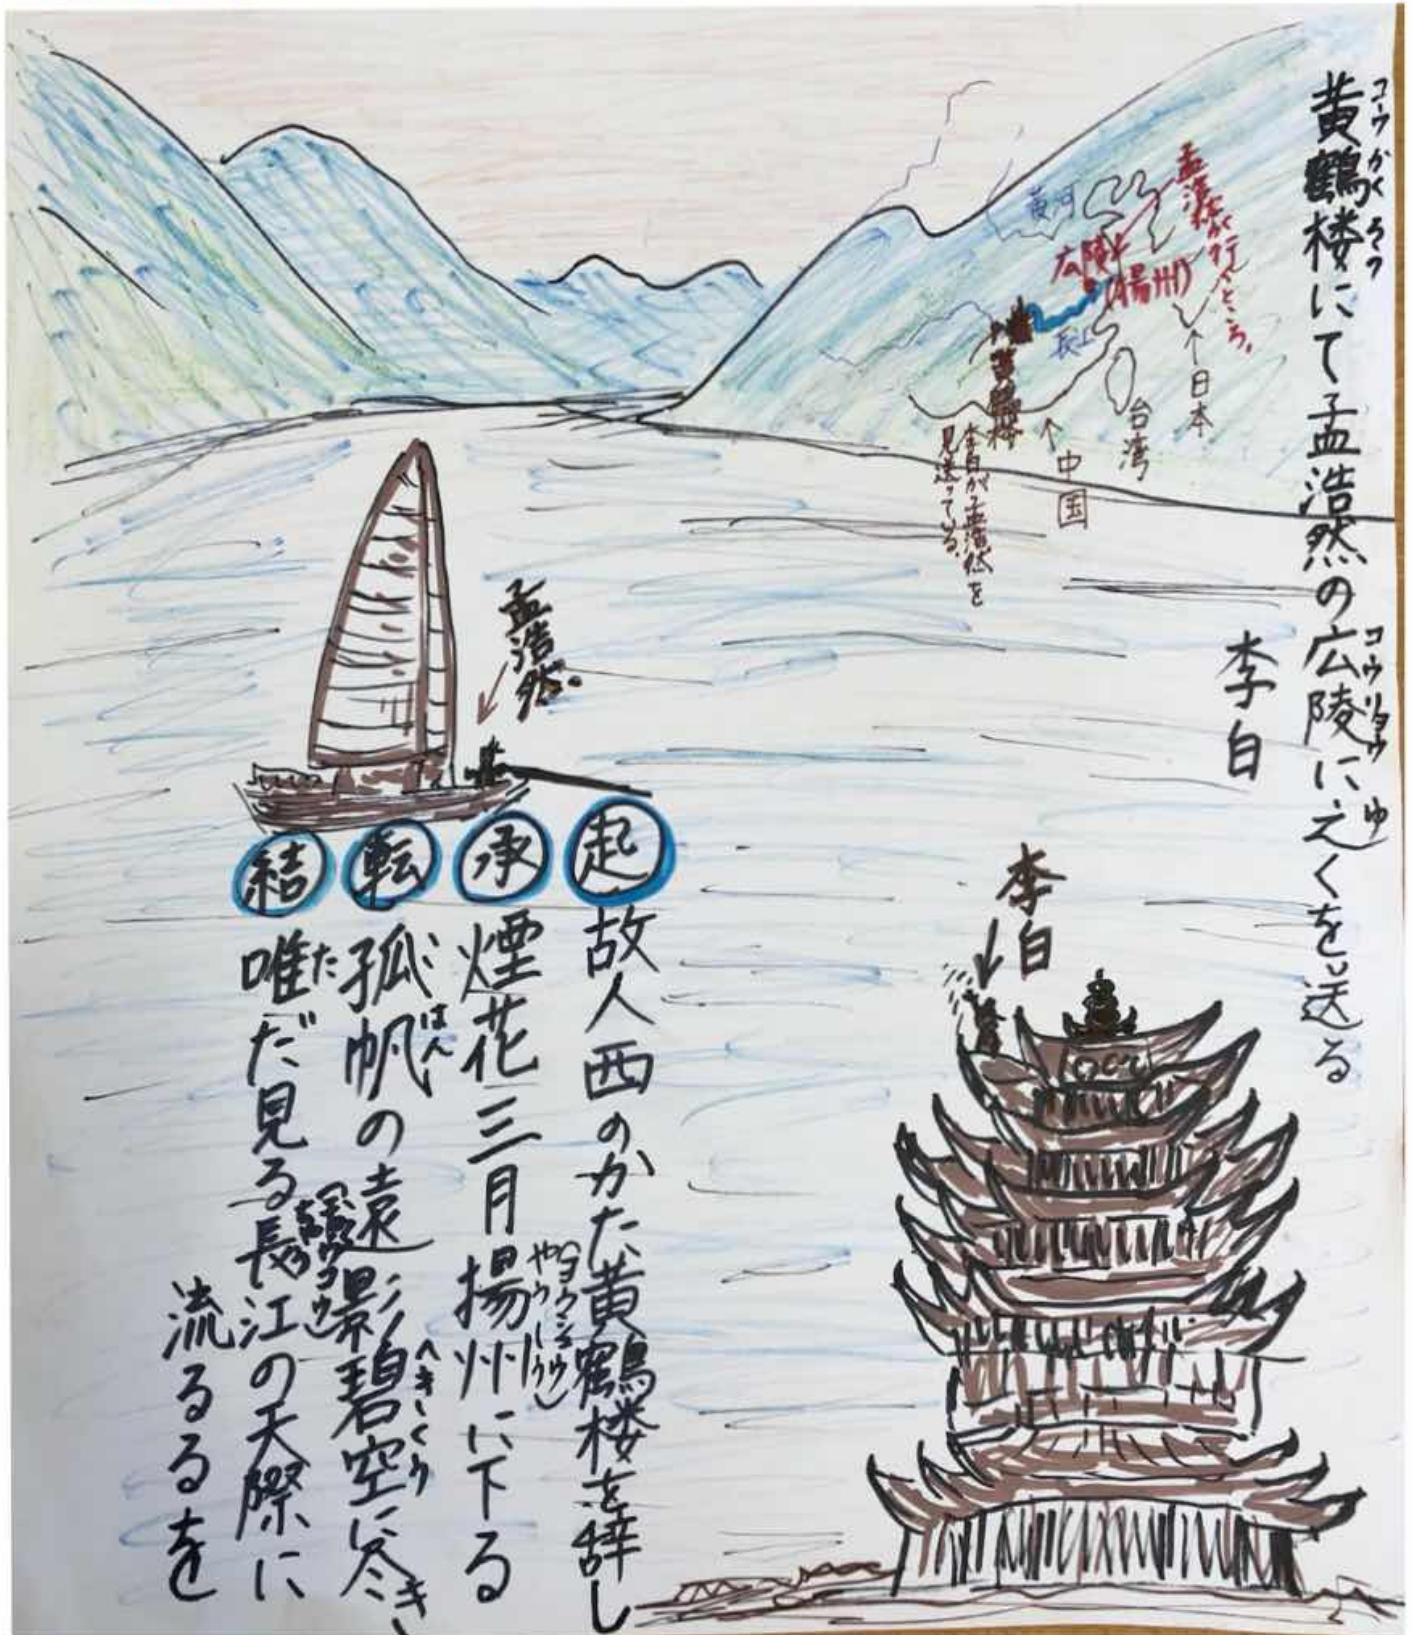 黄鶴楼にて孟浩然の広陵にえくを送る
コーウかくろウ
コウリョウ
ゆ
李白
孟浩然が行くところ。
黄河
広陵
(揚州)
長江
黄鶴楼
李白が孟浩然を
見送っている。
↑日本
台湾
↑中国
孟浩然
李白
起 故人西のかた黄鶴楼を辞し
承 煙花三月揚州に下る
やうしう
(ヨウシュウ)
転 孤帆の遠影碧空に尽き
こはん
へきくう
結 唯だ見る長江の天際に
た
流るるを